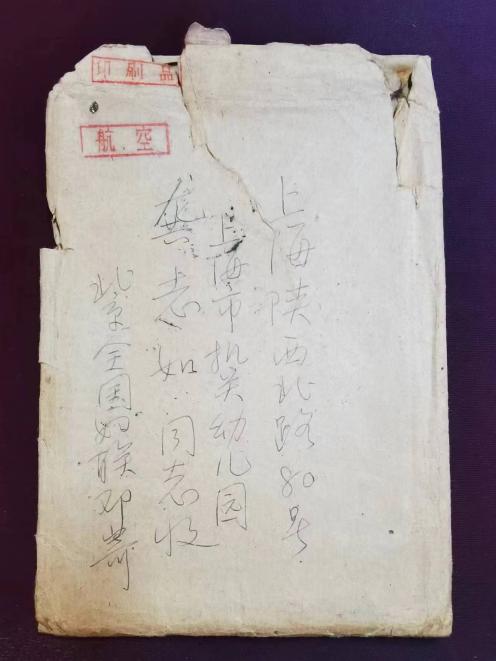 印刷品
航空
上海陕西北路80号
上海市机关幼儿园
龚志如同志收
北京全国妇联邓寄